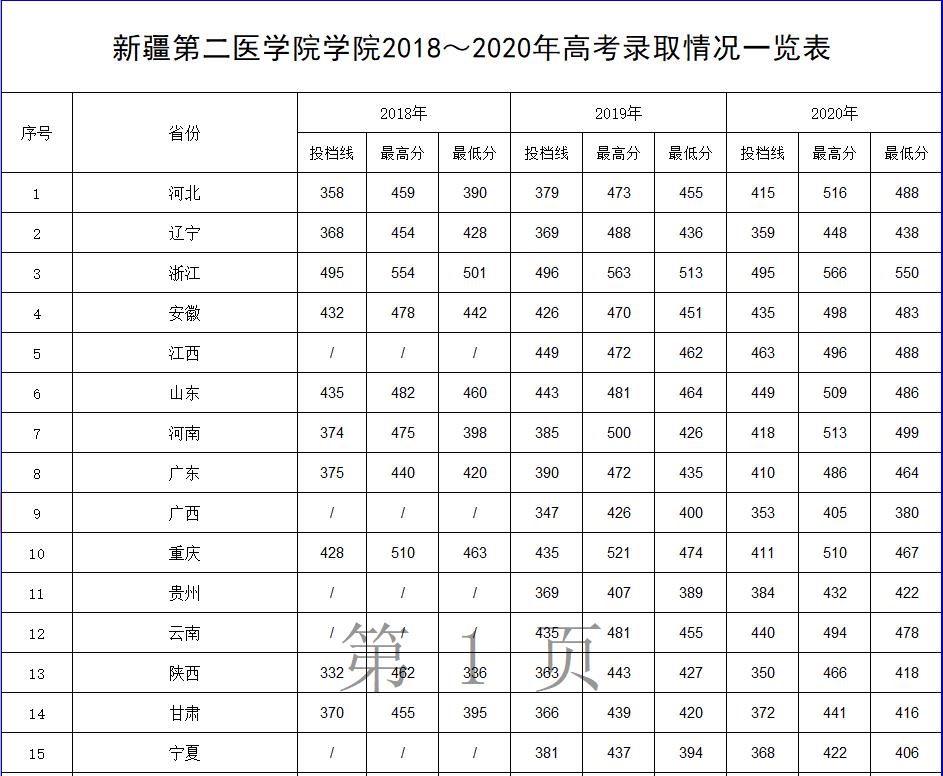 新疆第二医学院学院2018～2020年高考录取情况一览表
序号 省份 2018年 2019年 2020年
投档线 最高分 最低分 投档线 最高分 最低分 投档线 最高分 最低分
1 河北 358 459 390 379 473 455 415 516 488
2 辽宁 368 454 428 369 488 436 359 448 438
3 浙江 495 554 501 496 563 513 495 566 550
4 安徽 432 478 442 426 470 451 435 498 483
5 江西 / / / 449 472 462 463 496 488
6 山东 435 482 460 443 481 464 449 509 486
7 河南 374 475 398 385 500 426 418 513 499
8 广东 375 440 420 390 472 435 410 486 464
9 广西 / / / 347 426 400 353 405 380
10 重庆 428 510 463 435 521 474 411 510 467
11 贵州 / / / 369 407 389 384 432 422
12 云南 / / / 435 481 455 440 494 478
第 1 页
13 陕西 332 462 336 363 443 427 350 466 418
14 甘肃 370 455 395 366 439 420 372 441 416
15 宁夏 / / / 381 437 394 368 422 406